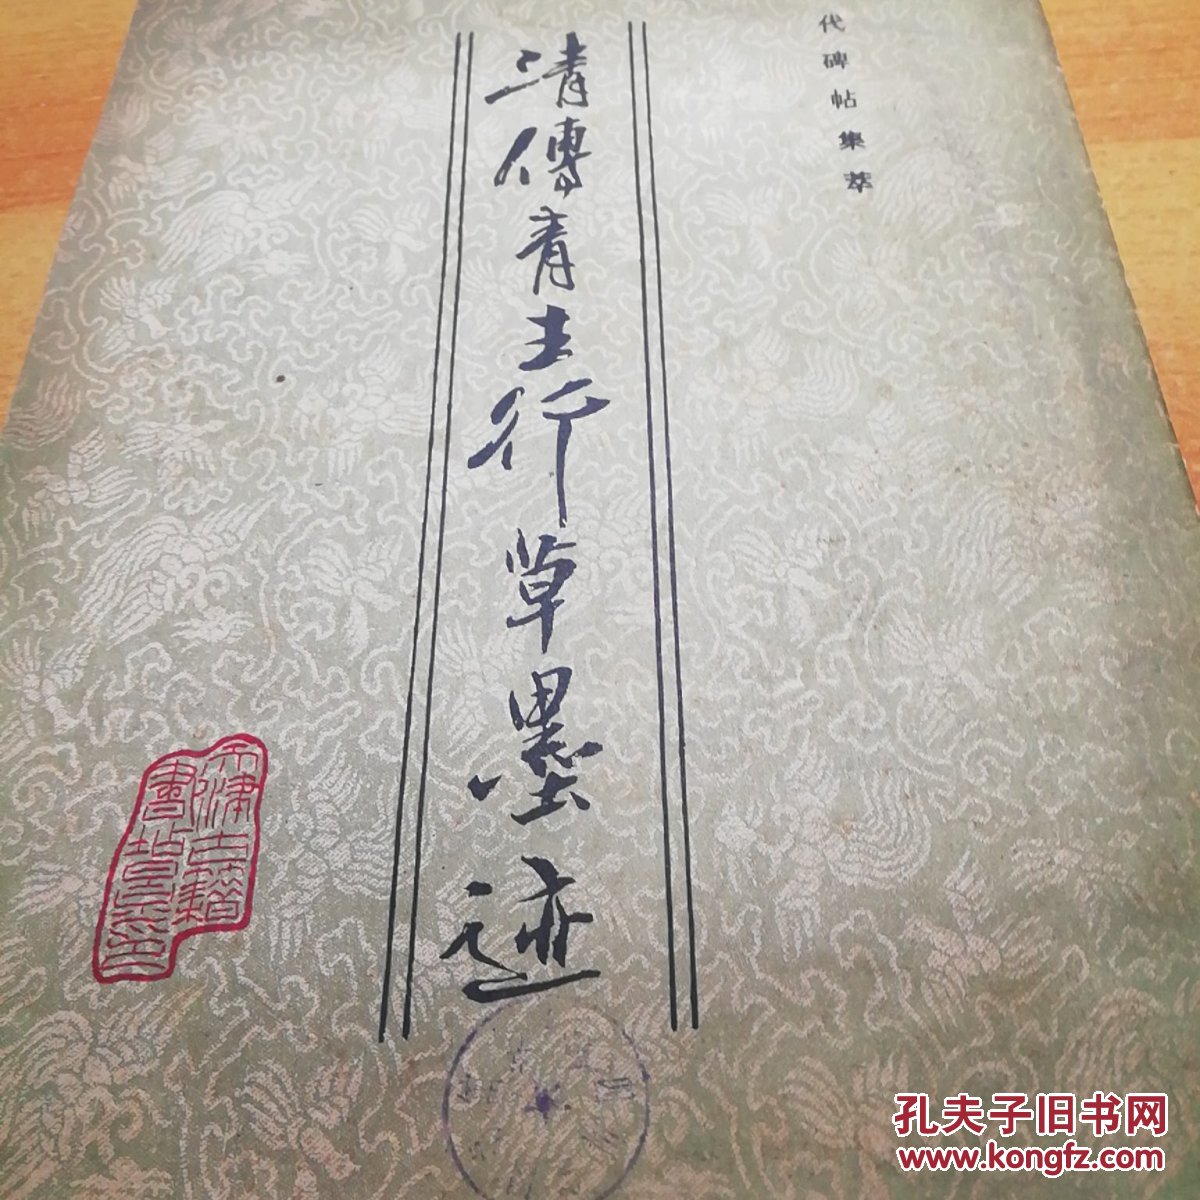 代碑帖集萃
清傅青主行草墨迹
天津古籍
書店
孔夫子旧书网
www.kongfz.com